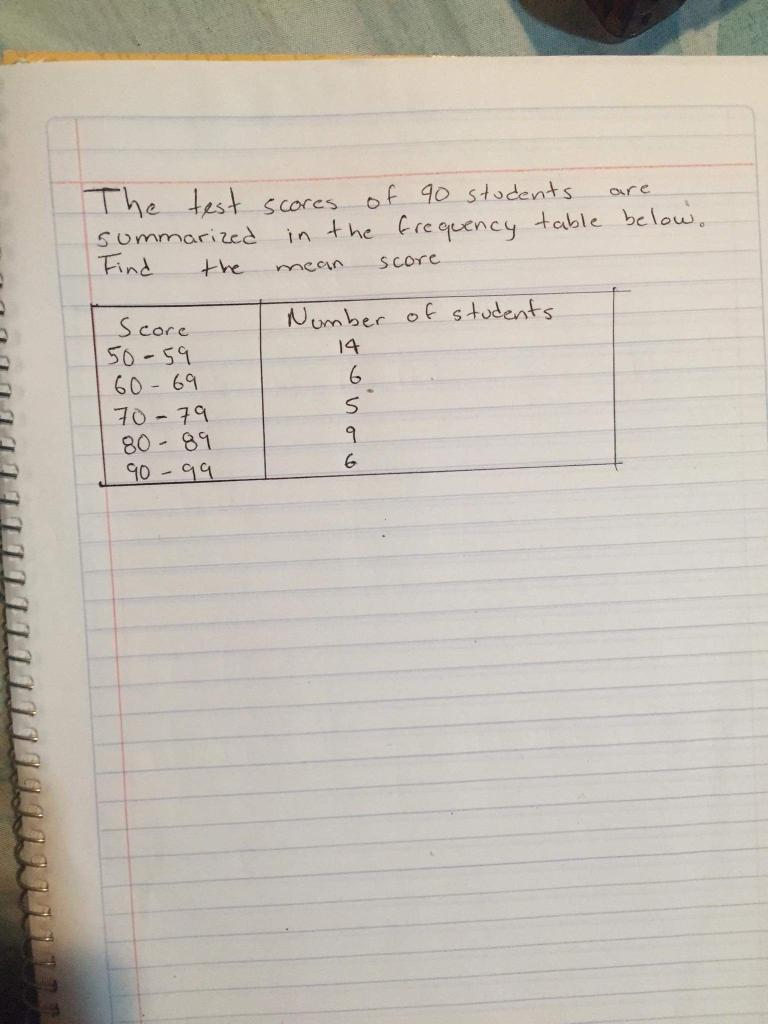 The test scores of 90 students are
summarized in the frequency table below.
Find the mean score
Score Number of students
50-59 14
60-69 6
70-79 5
80-89 9
90-99 6